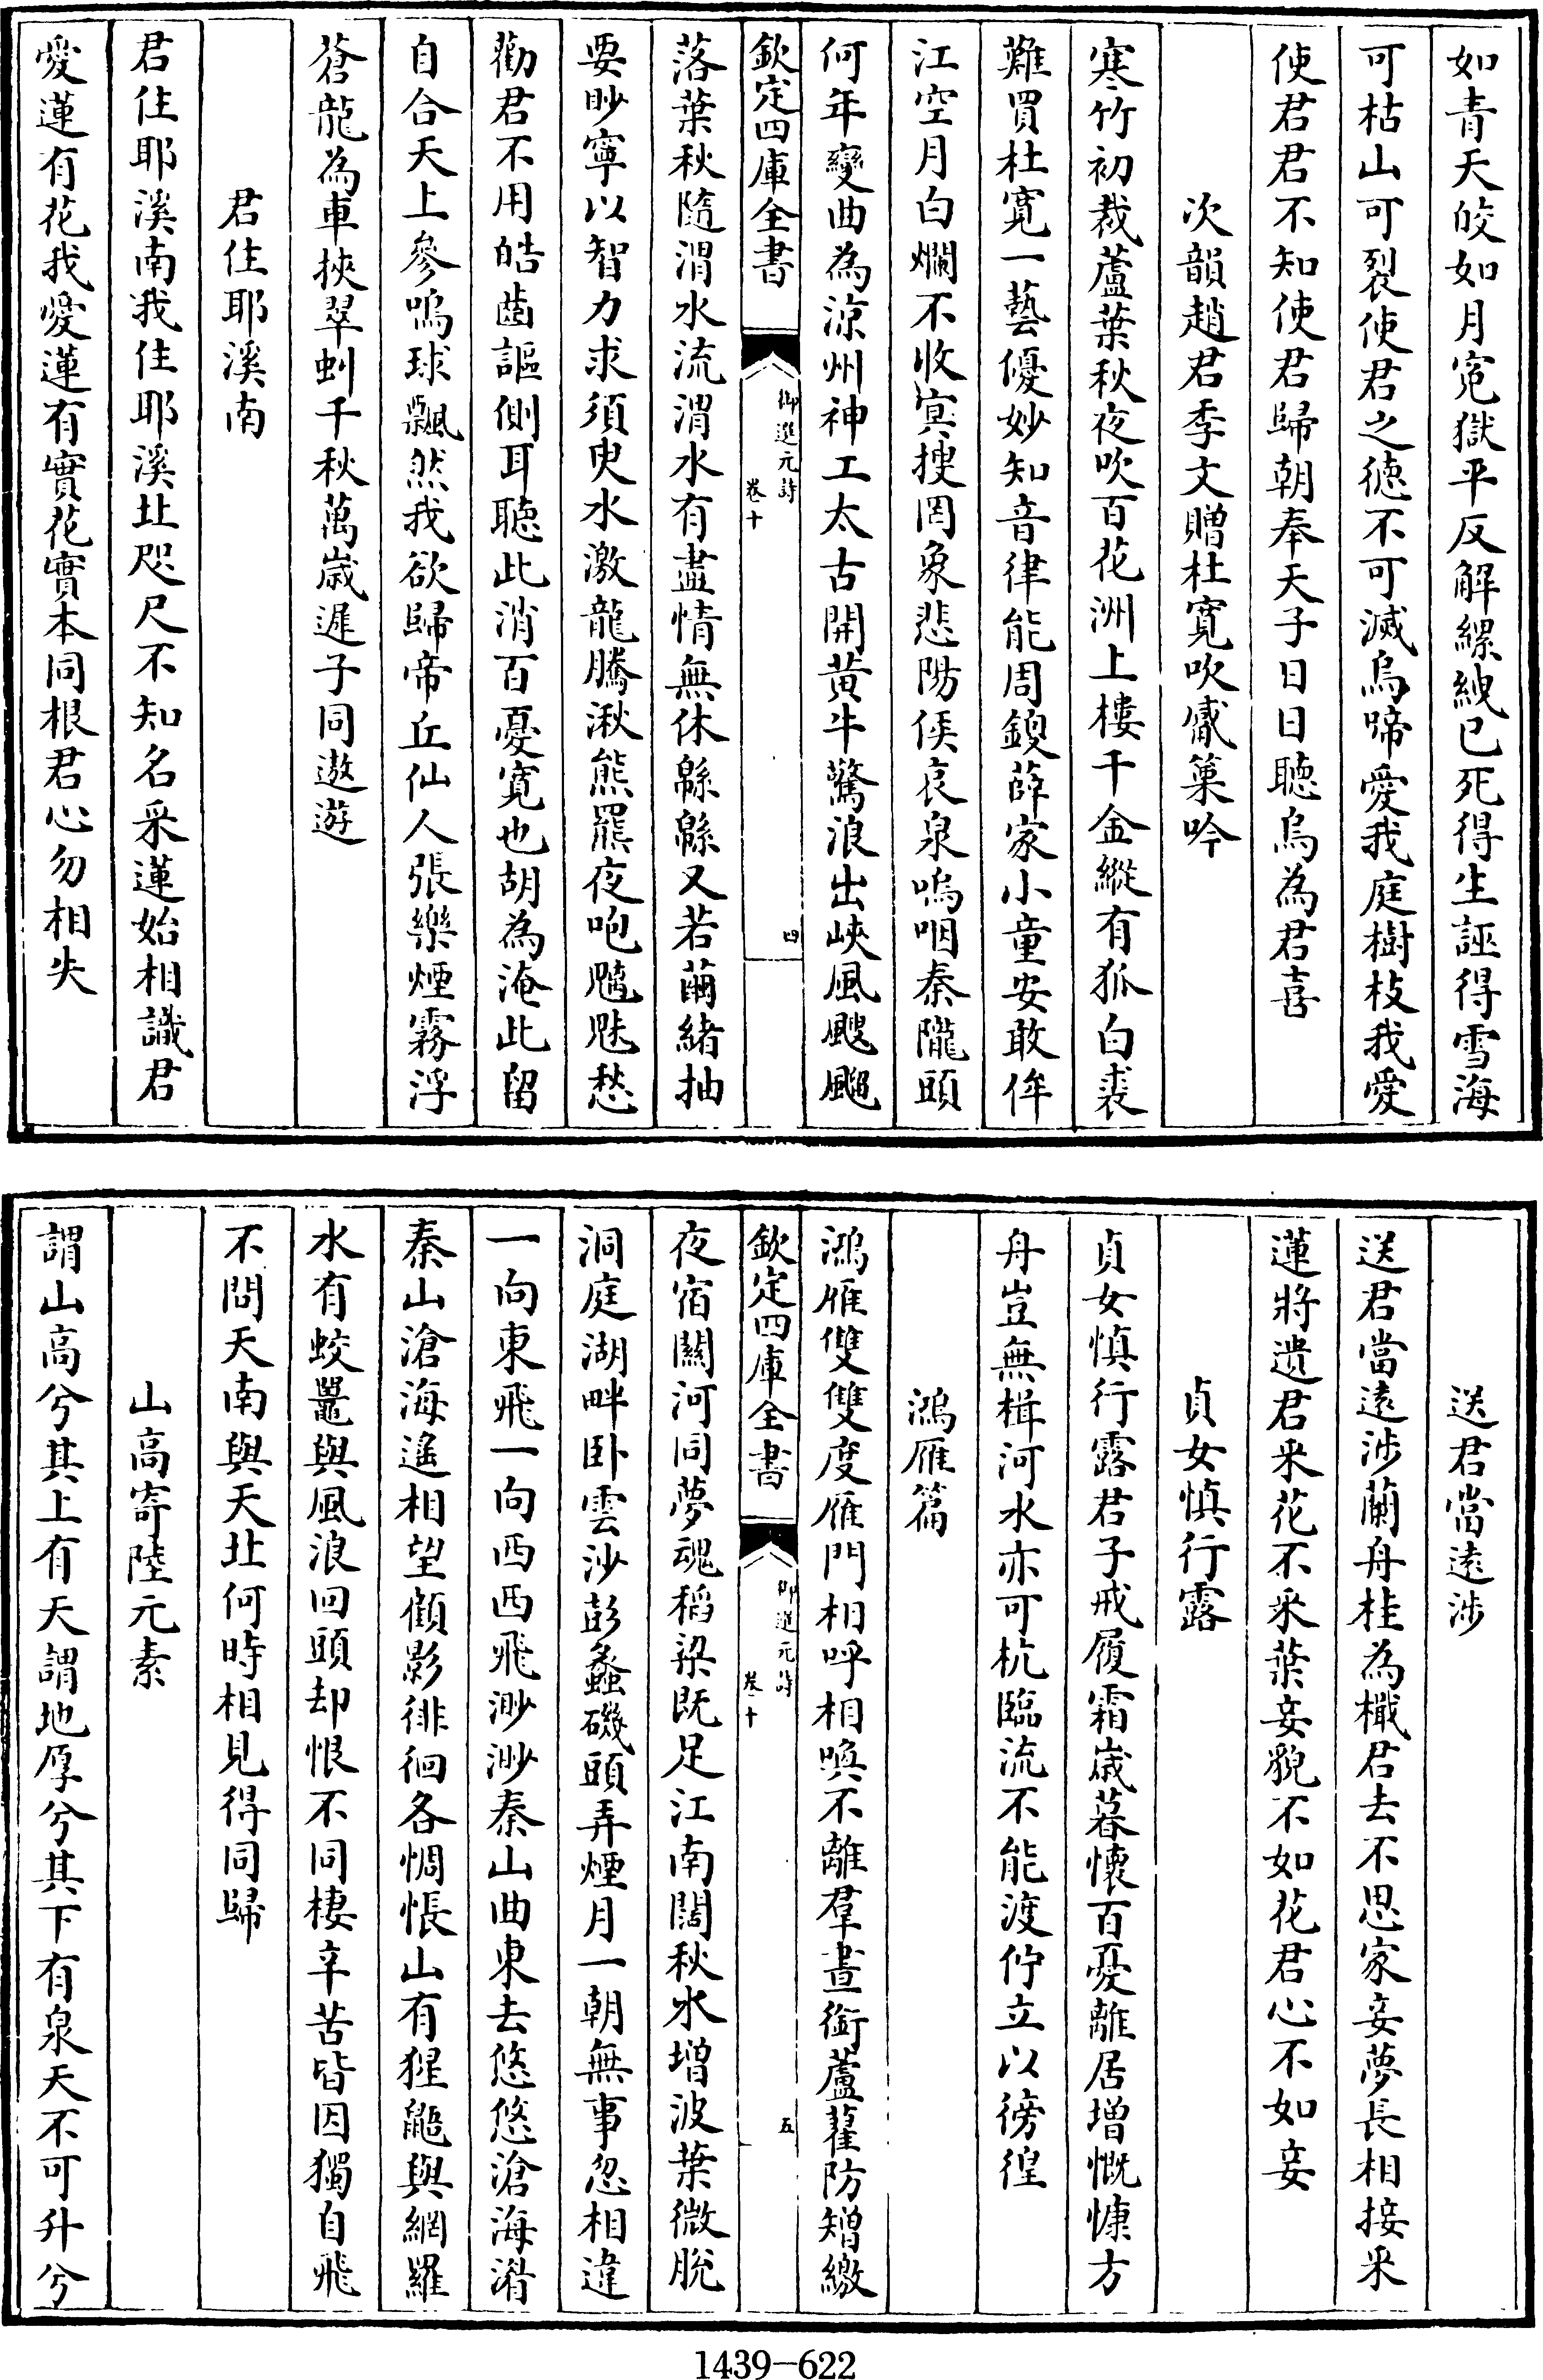 如青天皎如月寃獄平反解縲絏已死得生誣得雪海
可枯山可裂使君之德不可滅烏啼愛我庭樹枝我愛
使君君不知使君歸朝奉天子日日聽烏為君喜
次韻趙君季文贈杜寛吹觱篥吟
寒竹初裁蘆葉秋夜吹百花洲上樓千金縱有狐白裘
難買杜寛一藝優妙知音律能周鍐薛家小童安敢侔
江空月白爛不收㝠搜罔象悲陽侯哀泉嗚咽秦隴頭
何年變曲為涼州神工太古開黄牛驚浪出峽風颼飀
欽定四庫全書
御選元詩
卷十
四
落葉秋隨渭水流渭水有盡情無休緜緜又若繭緒抽
要眇寧以智力求須臾水激龍騰湫熊羆夜咆魑魅愁
勸君不用皓齒謳側耳聽此消百憂寛也胡為淹此留
自合天上參鳴球飄然我欲歸帝丘仙人張樂煙霧浮
蒼龍為車挾翠虯千秋萬歳遲子同遨遊
君住耶溪南
君住耶溪南我住耶溪北咫尺不知名采蓮始相識君
愛蓮有花我愛蓮有實花實本同根君心勿相失
送君當逺涉
送君當逺涉蘭舟桂為檝君去不思家妾夢長相接采
蓮將遺君采花不采葉妾貌不如花君心不如妾
貞女慎行露
貞女慎行露君子戒履霜歳暮懷百憂離居增慨慷方
舟豈無楫河水亦可杭臨流不能渡佇立以徬徨
鴻雁篇
鴻雁雙雙度雁門相呼相喚不離羣晝銜蘆雚防矰繳
欽定四庫全書
御選元詩
卷十
五
夜宿關河同夢魂稻粱既足江南闊秋水增波葉微脫
洞庭湖畔卧雲沙彭蠡磯頭弄煙月一朝無事忽相違
一向東飛一向西西飛渺渺秦山曲東去悠悠滄海湝
秦山滄海遙相望顧影徘徊各惆悵山有猩鼯與網羅
水有蛟鼉與風浪回頭却恨不同棲辛苦皆因獨自飛
不問天南與天北何時相見得同歸
山高寄陸元素
謂山高兮其上有天謂地厚兮其下有泉天不可升兮
1439—622